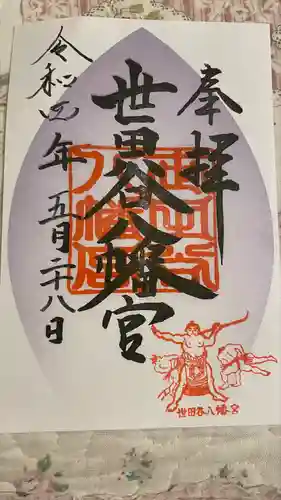 奉拝
世田谷八幡宮
令和四年五月二十八日
世田谷八幡宮